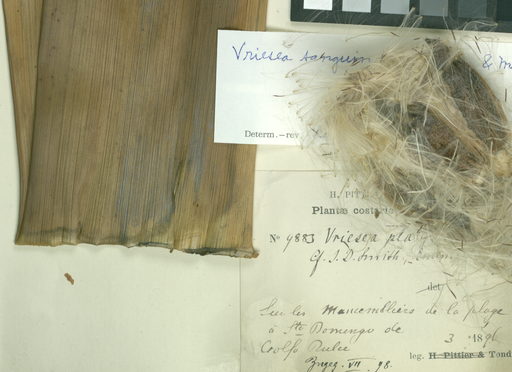 Vriesea sanguin
& M
Determ.—rev.
H. PITTI
Plantæ costari
No 9883 Vriesea pla
Cf. J. D. Smith,
det
Sur les Mancenilliers de la plage
à Sto Domingo de
Golfo Dulce
3 189
leg. H. Pittier & Tond
VII. 98.